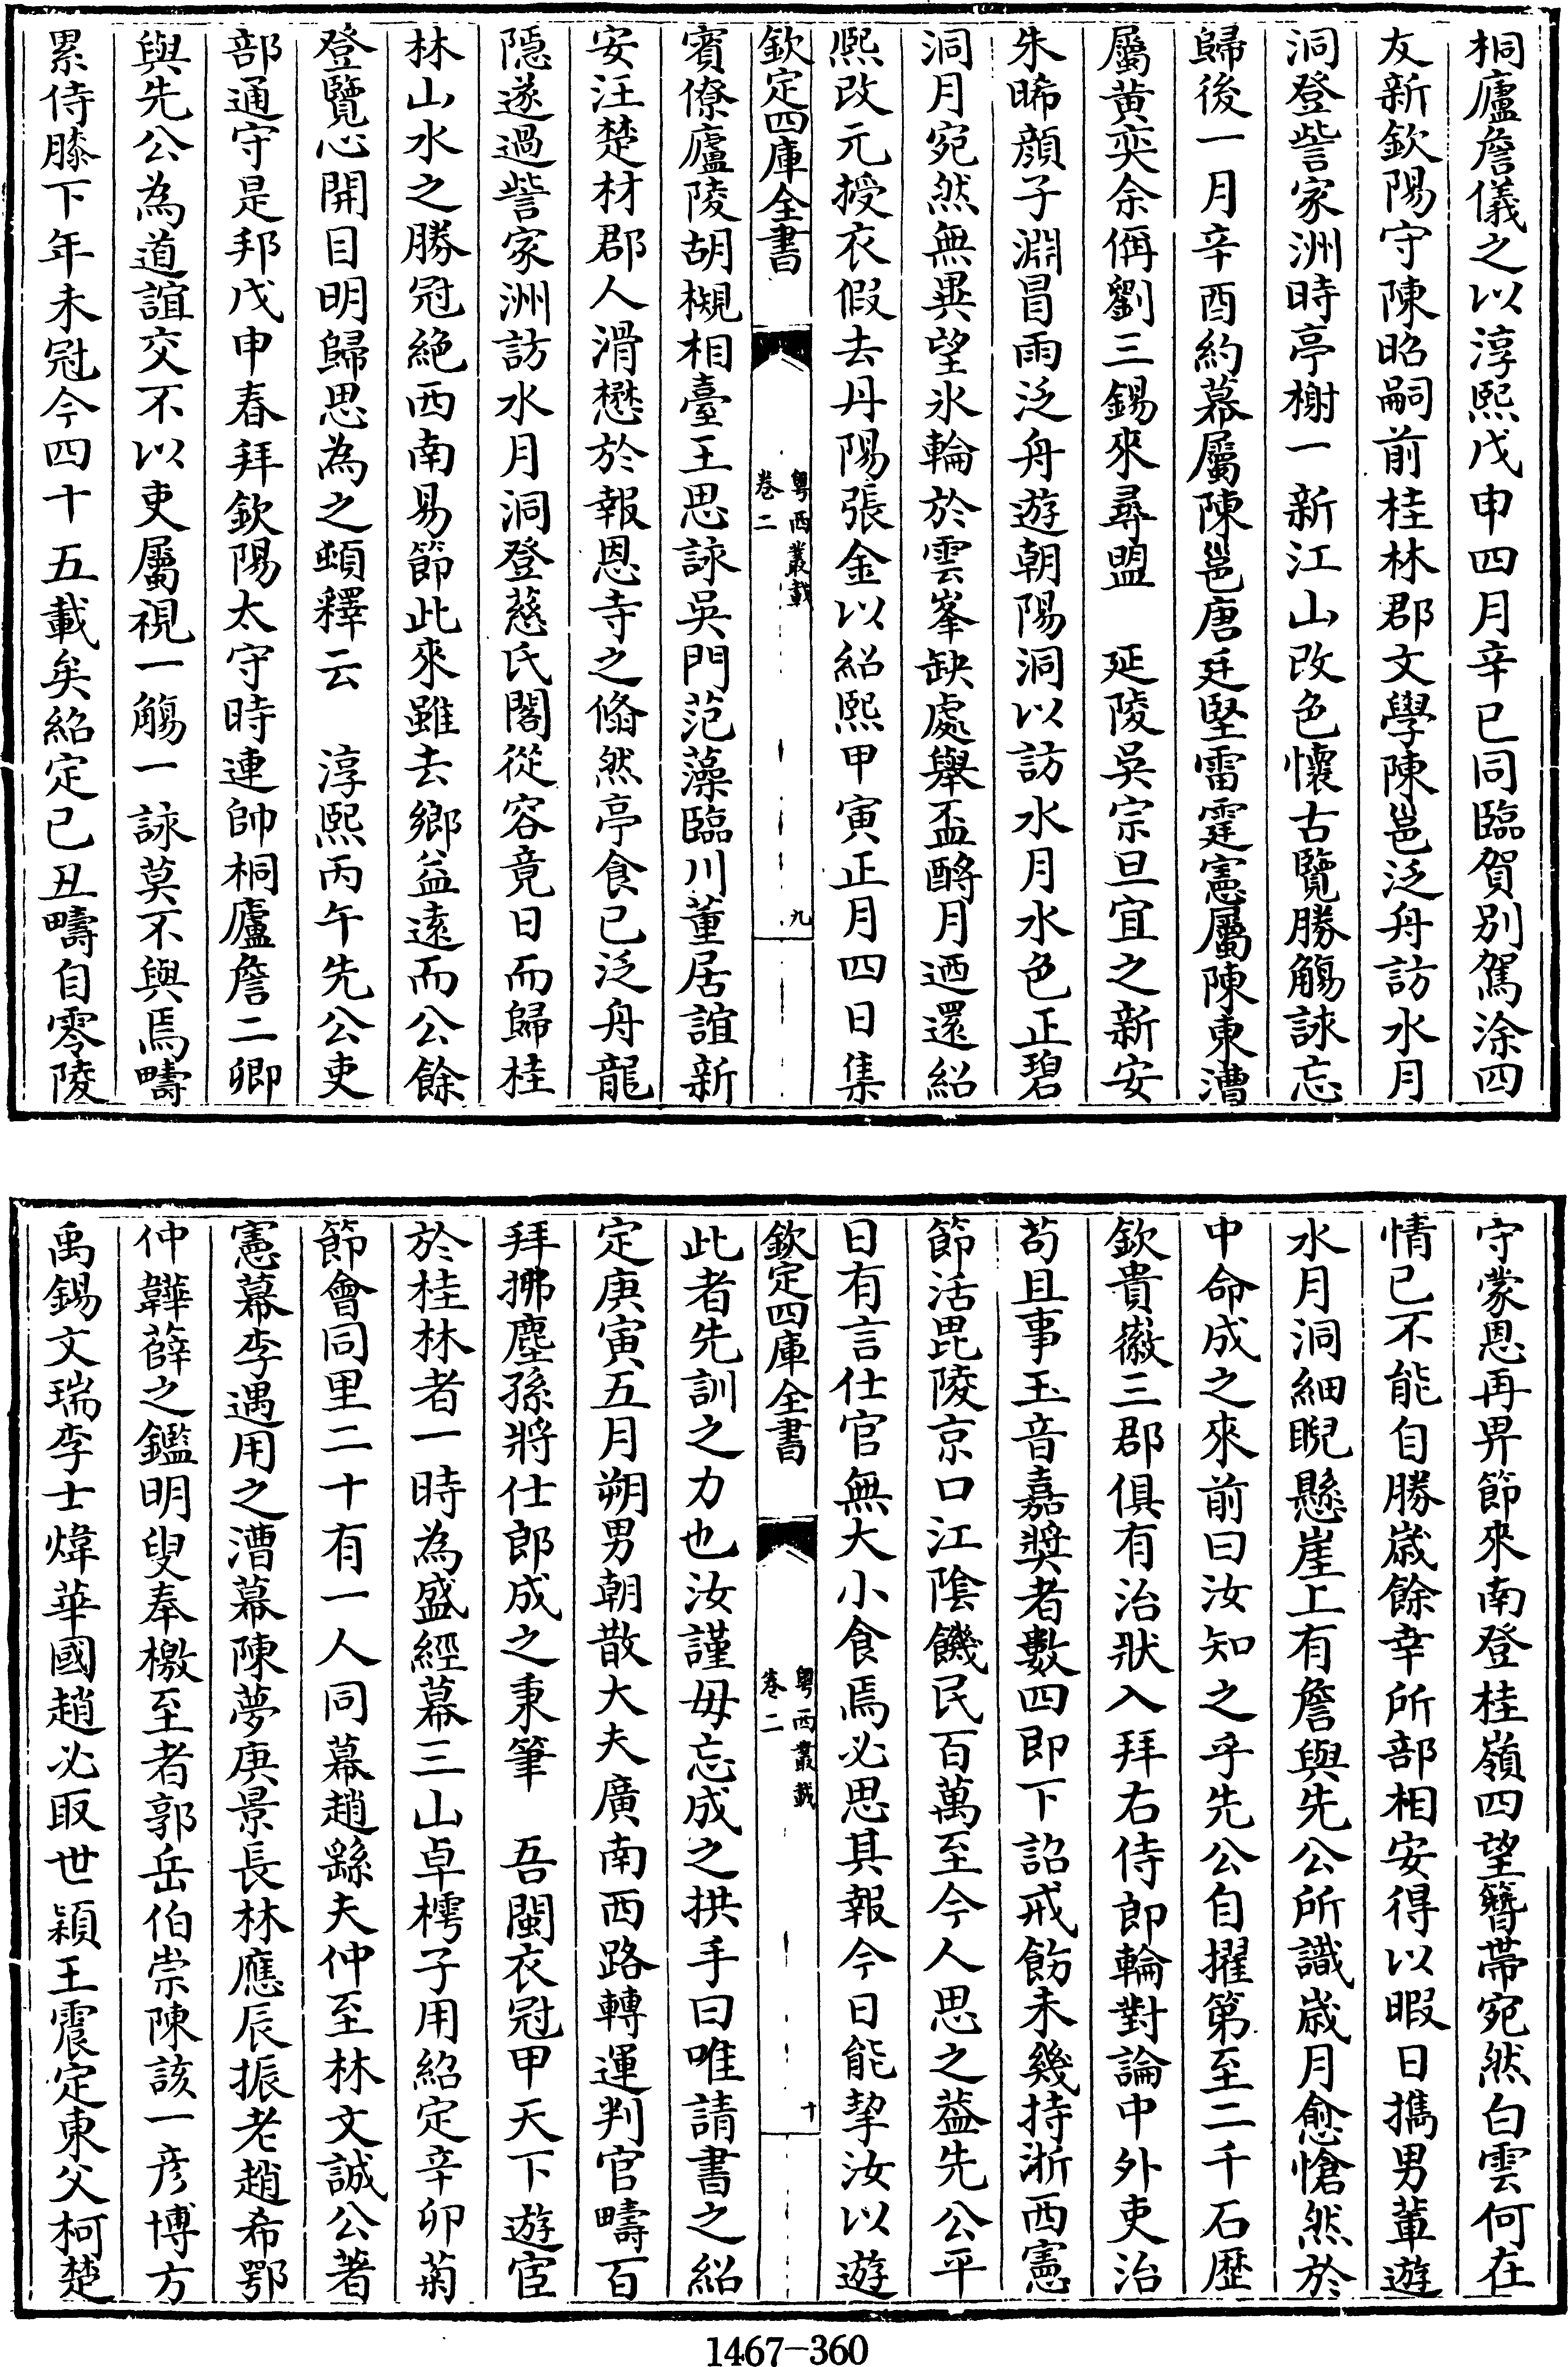 桐廬詹儀之以淳熙戊申四月辛巳同臨賀别駕涂四
友新欽陽守陳昭嗣前桂林郡文學陳邕泛舟訪水月
洞登訾家洲時亭榭一新江山改色懷古覽勝觴詠忘
歸後一月辛酉約幕屬陳邕唐廷堅雷霆憲屬陳東漕
屬黄奕余偁劉三錫來尋盟　延陵吳宗旦宜之新安
朱晞顔子淵冒雨泛舟遊朝陽洞以訪水月水色正碧
洞月宛然無異望氷輪於雲峯缺處舉盃酹月迺還紹
熙改元授衣假去丹陽張金以紹熙甲寅正月四日集
欽定四庫全書
粤西叢載
卷二
九
賓僚廬陵胡槻相臺王思詠吳門范藻臨川董居誼新
安汪楚材郡人滑懋於報恩寺之翛然亭食已泛舟龍
隠遂過訾家洲訪水月洞登慈氏閣從容竟日而歸桂
林山水之勝冠絶西南易節此來雖去鄉益遠而公餘
登覽心開目明歸思為之頓釋云　淳熙丙午先公吏
部通守是邦戊申春拜欽陽太守時連帥桐廬詹二卿
與先公為道誼交不以吏屬視一觴一詠莫不與焉疇
累侍膝下年未冠今四十五載矣紹定己丑疇自零陵
守蒙恩再畀節來南登桂嶺四望簪帶宛然白雲何在
情已不能自勝嵗餘幸所部相安得以暇日攜男輩遊
水月洞細睨懸崖上有詹與先公所識嵗月愈愴然於
中命成之來前曰汝知之乎先公自擢第至二千石歴
欽貴徽三郡俱有治狀入拜右侍郎輪對論中外吏治
苟且事玉音嘉奬者數四即下詔戒飭未幾持淛西憲
節活毘陵京口江隂饑民百萬至今人思之葢先公平
日有言仕官無大小食焉必思其報今日能挈汝以遊
欽定四庫全書
粤西叢載
卷二
十
此者先訓之力也汝謹毋忘成之拱手曰唯請書之紹
定庚寅五月朔男朝散大夫廣南西路轉運判官疇百
拜拂塵孫將仕郎成之秉筆　吾閩衣冠甲天下遊宦
於桂林者一時為盛經幕三山卓樗子用紹定辛卯菊
節會同里二十有一人同幕趙繇夫仲至林文誠公著
憲幕李遇用之漕幕陳夢庚景長林應辰振老趙希鄂
仲韡薛之鑑明叟奉檄至者郭岳伯崇陳該一彦博方
禹錫文瑞李士煒華國趙必取世穎王震定東父柯楚
1467-360